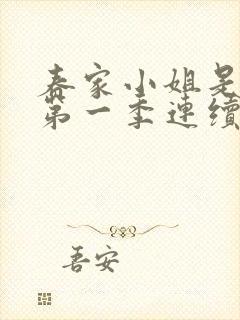 春家小姐是
第一季連續
吾安